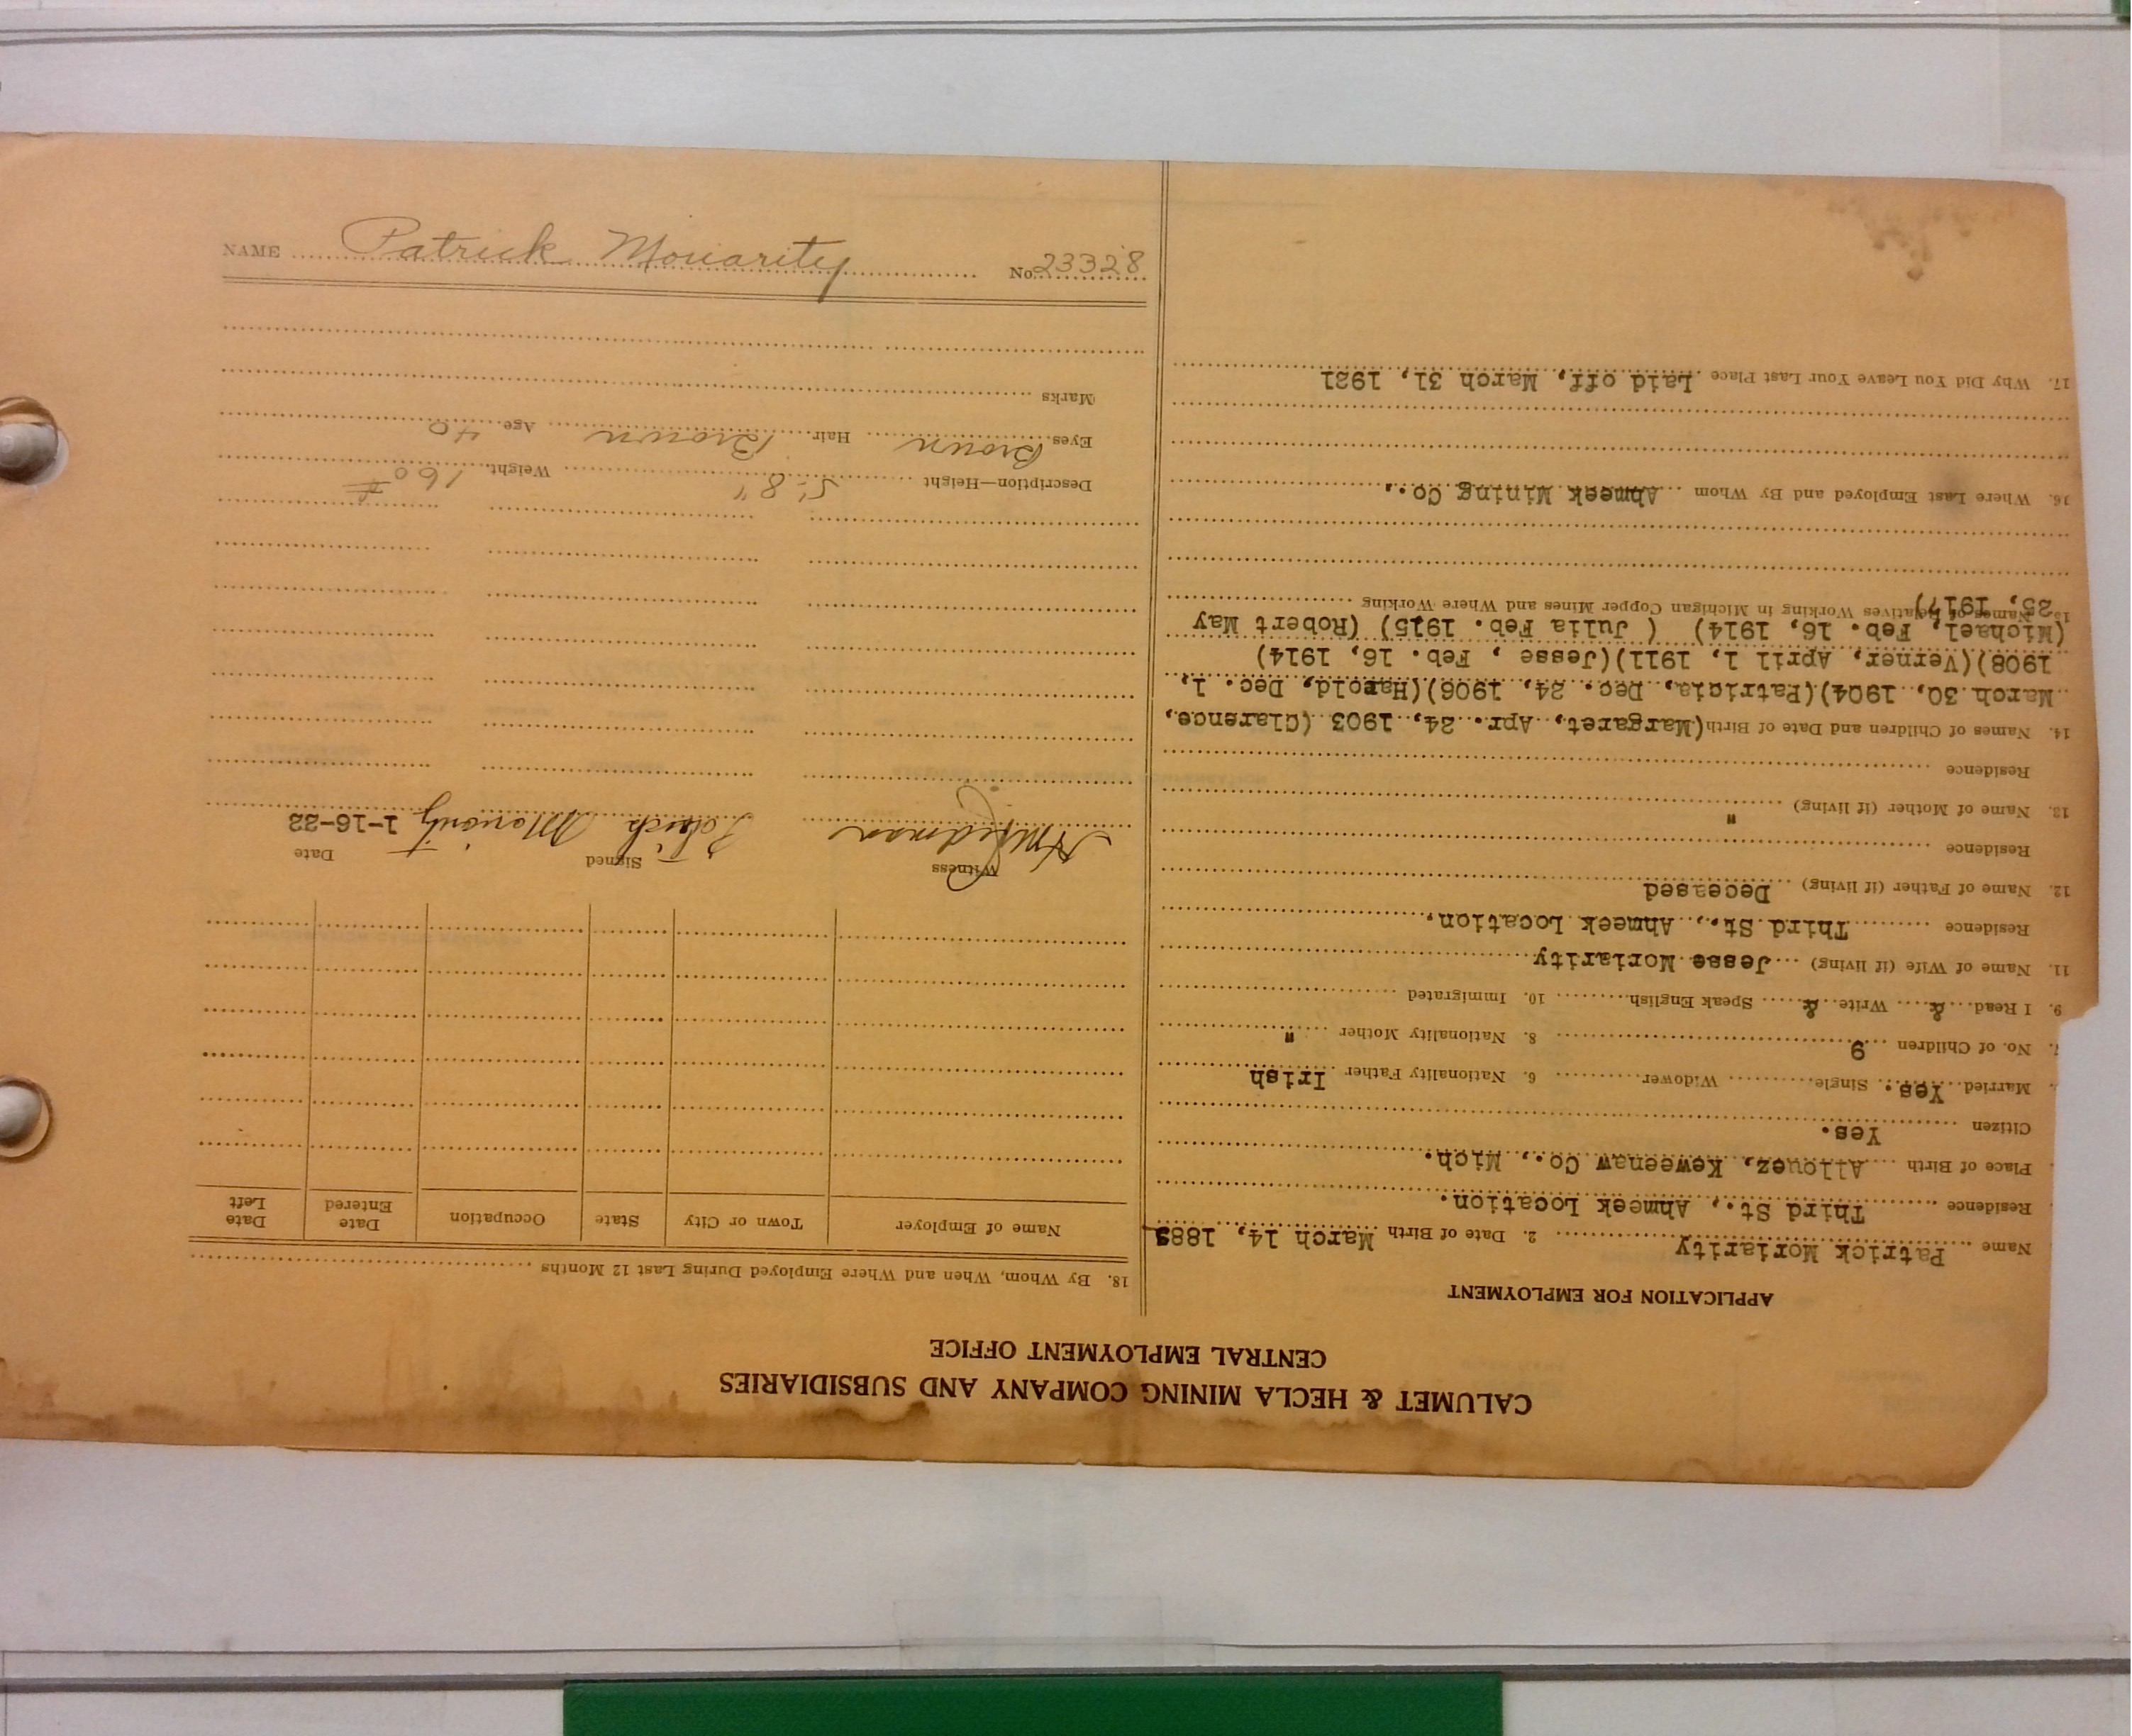 NAME Patrick Moriarity No. 23328
CALUMET & HECLA MINING COMPANY AND SUBSIDIARIES
CENTRAL EMPLOYMENT OFFICE
APPLICATION FOR EMPLOYMENT
Name Patrick Moriarity 2. Date of Birth March 14, 1883
Residence Third St., Ahmeek Location.
Place of Birth Allouez, Keweenaw Co., Mich.
Citizen Yes.
Married Yes. Single Widower 6. Nationality Father Irish
7. No. of Children 9 8. Nationality Mother "
9. I Read & Write & Speak English 10. Immigrated
11. Name of Wife (if living) Jesse Moriarity
Residence Third St., Ahmeek Location.
12. Name of Father (if living) Deceased
Residence
13. Name of Mother (if living) "
Residence
14. Names of Children and Date of Birth (Margaret, Apr. 24, 1903 (Clarence,
March 30, 1904)(Patricia, Dec. 24, 1906)(Harold, Dec. 1,
1908)(Verner, April 1, 1911)(Jesse , Feb. 16, 1914)
(Michael, Feb. 16, 1914) ( Julia Feb. 1915) (Robert May
25, 1917)
15. Names of Relatives Working in Michigan Copper Mines and Where Working
16. Where Last Employed and By Whom Ahmeek Mining Co.,
17. Why Did You Leave Your Last Place Laid off, March 31, 1921
18. By Whom, When and Where Employed During Last 12 Months
Name of Employer Town or City State Occupation Date Entered Date Left
Witness Signed Date
Patrick Moriarity 1-16-22
Description—Height 5' 8" Weight 160 #
Eyes Brown Hair Brown Age 40
Marks